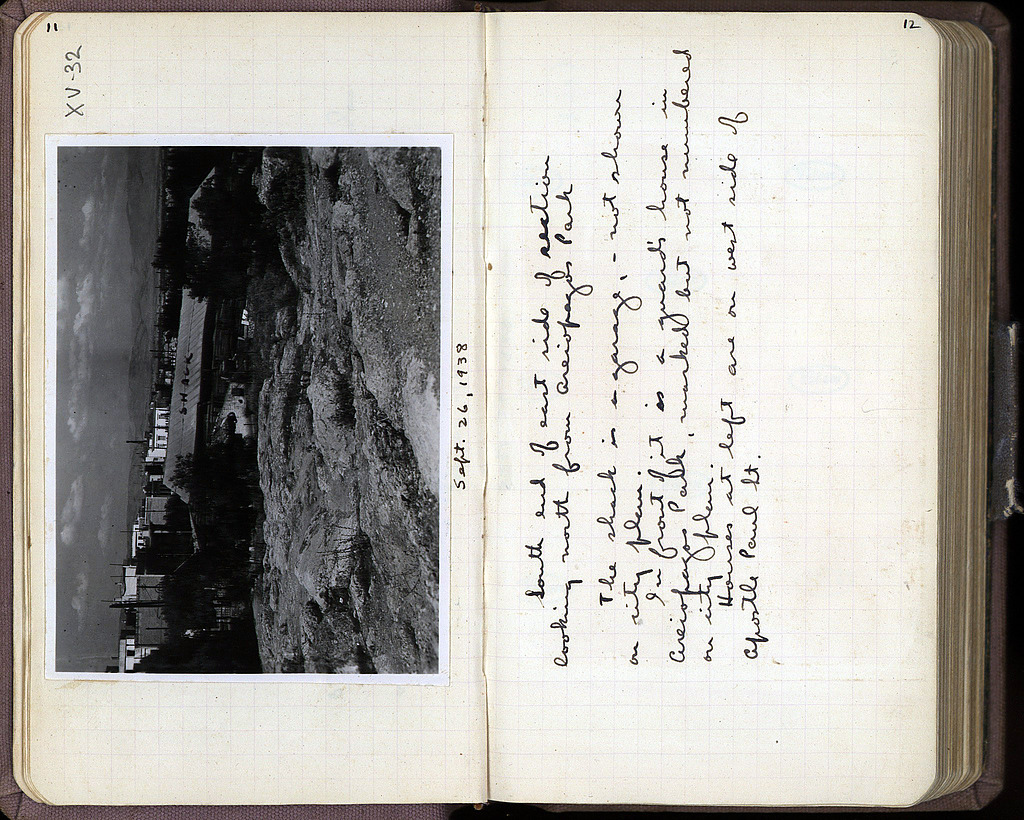 11
XV-32
SHACK
Sept. 26, 1938
12
South end of east side of section
looking north from Areiopagos Park
The shack is a garage, - not shown
on city plan.
In front of it is a guard's house in
Areiopagos Park, marked but not numbered
on city plan.
Houses at left are on west side of
Apostle Paul St.